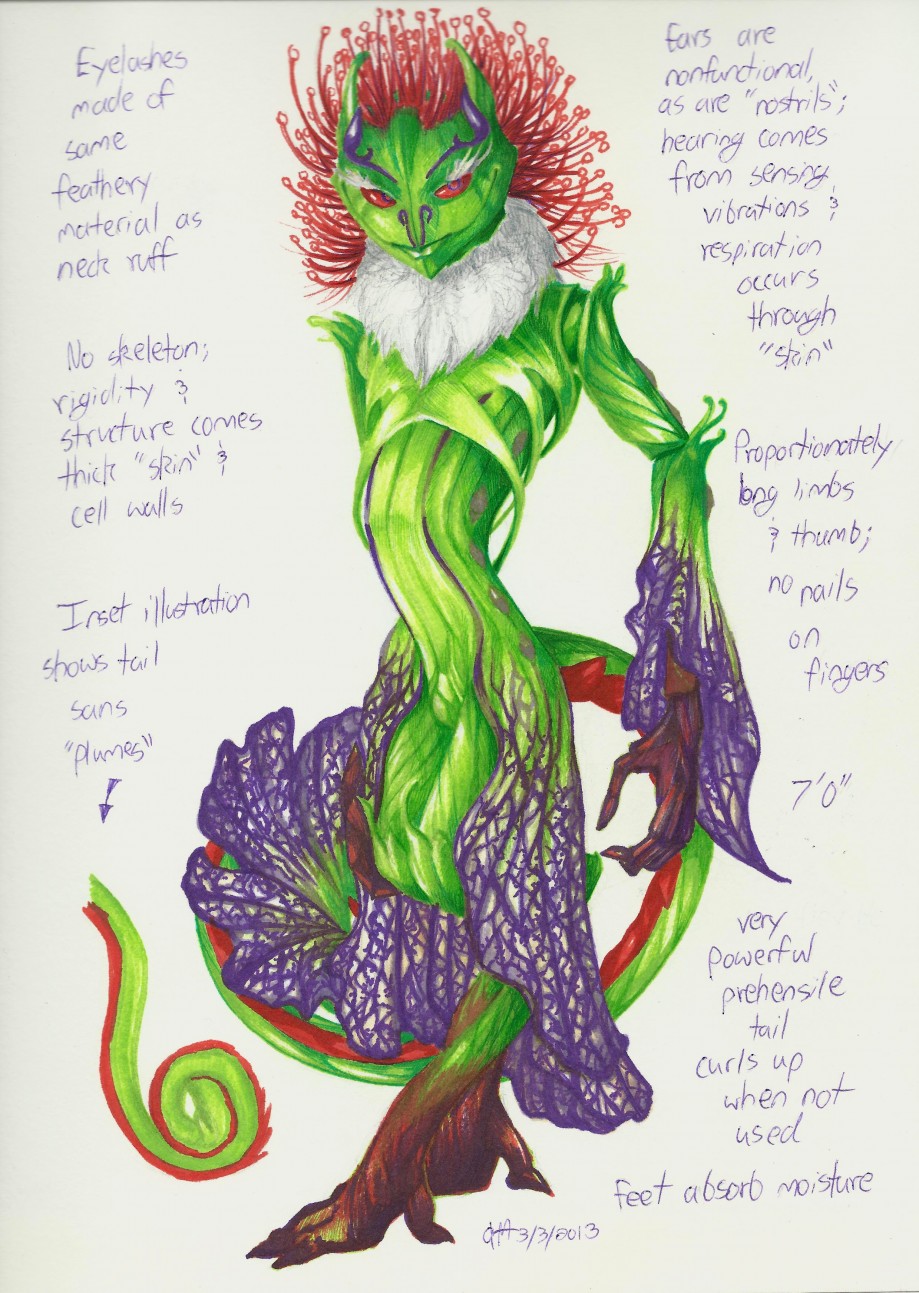 Eyelashes
made of
same
feathery
material as
neck ruff
No skeleton;
rigidity &
structure comes
thick "skin" &
cell walls
Inset illustration
shows tail
sans
"plumes"
Ears are
nonfunctional,
as are "nostrils";
hearing comes
from sensing
vibrations &
respiration
occurs
through
"skin"
Proportionately
long limbs
& thumb;
no nails
on
fingers
7'0"
very
powerful
prehensile
tail
curls up
when not
used
feet absorb moisture
3/3/2013